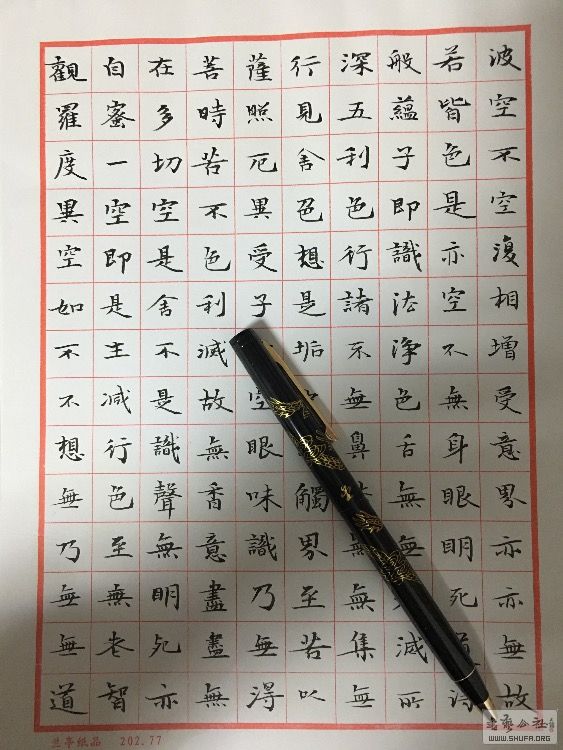 觀自在菩薩行深般若波
羅蜜多時照見五蘊皆空
度一切苦厄舍利子色不
異空空不異色色即是空
空即是色受想行識亦復
如是舍利子是諸法空相
不生不滅垢不淨不增
不減是故空無色無受
想行識無眼鼻舌身意
無色聲香味觸無眼界
乃至無意識界無無明亦
無無明盡乃至無死亦
無老死盡無苦集滅道無
道智亦無得以無所得故
兰亭纸品 202.77
书艺公社
WWW.SHUFA.ORG